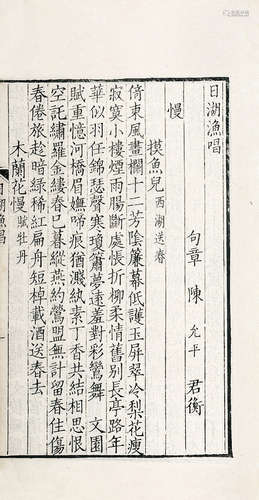 日湖漁唱
句章　陳　允平　君衡
慢
摸魚兒　西湖送春
倚東風畫闌十二芳陰簾幕低護玉屏翠冷梨花瘦
寂寞小樓煙雨腸斷處悵折柳柔情舊别長亭路年
華似羽任錦瑟聲寒瓊簫夢遠羞對彩鸞舞　文園
賦重憶河橋眉嫵啼痕猶濺紈素丁香共結相思恨
空託繡羅金縷春已暮縱燕約鶯盟無計留春住傷
春倦旅趁暗綠稀紅扁舟短棹載酒送春去
木蘭花慢　賦牡丹
日湖漁唱